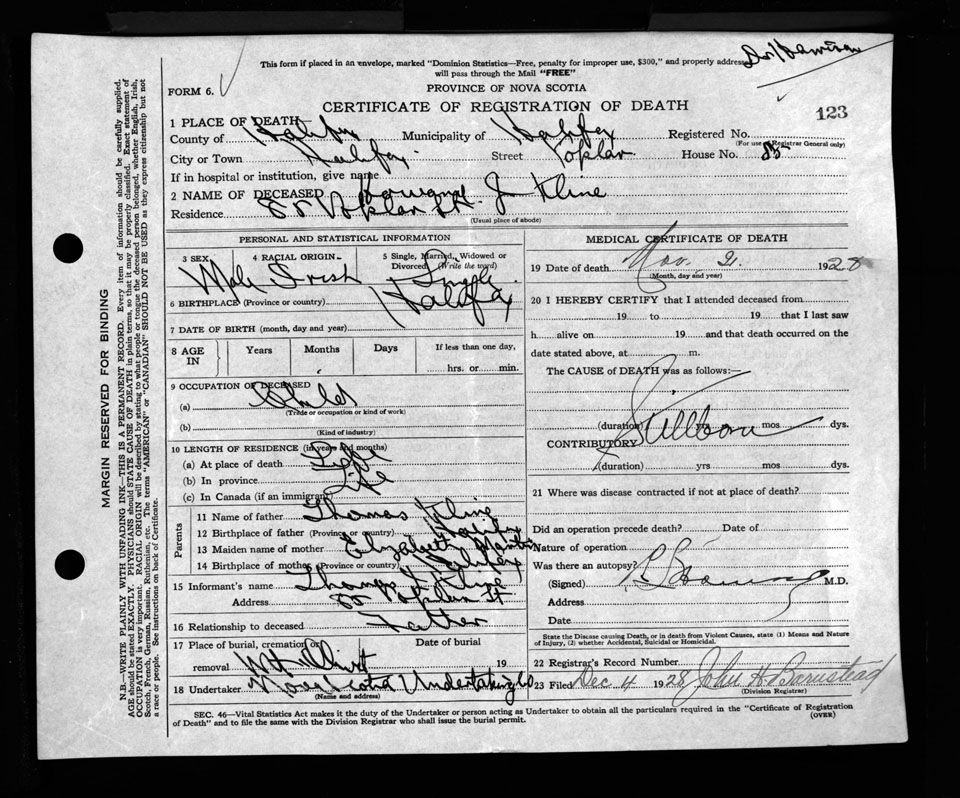 This form if placed in an envelope, marked "Dominion Statistics—Free, penalty for improper use, $300," and properly address
will pass through the Mail "FREE"
FORM 6.
PROVINCE OF NOVA SCOTIA
CERTIFICATE OF REGISTRATION OF DEATH
123
1 PLACE OF DEATH
County of Halifax Municipality of Halifax Registered No.
(For use of Registrar General only)
City or Town Halifax Street House No. 85
If in hospital or institution, give name
2 NAME OF DECEASED J Kline
Residence St
(Usual place of abode)
PERSONAL AND STATISTICAL INFORMATION
3 SEX Male
4 RACIAL ORIGIN Irish
5 Single, Married, Widowed or Divorced (Write the word) Single
6 BIRTHPLACE (Province or country) Halifax
7 DATE OF BIRTH (month, day and year)
8 AGE IN Years Months Days If less than one day,
hrs. or min.
9 OCCUPATION OF DECEASED
(a) Child
(Trade or occupation or kind of work)
(b)
(Kind of industry)
10 LENGTH OF RESIDENCE (in years and months)
(a) At place of death Life
(b) In province Life
(c) In Canada (if an immigrant)
Parents
11 Name of father Thomas Kline
12 Birthplace of father (Province or country) Halifax
13 Maiden name of mother Elizabeth Martin
14 Birthplace of mother (Province or country) Halifax
15 Informant's name Thomas J Kline
Address St
16 Relationship to deceased Father
17 Place of burial, cremation or removal Mt Olivet
Date of burial 19
18 Undertaker Nova Scotia Undertaking Co
(Name and address)
MEDICAL CERTIFICATE OF DEATH
19 Date of death Nov. 21. 1928
(Month, day and year)
20 I HEREBY CERTIFY that I attended deceased from
19 to 19 that I last saw
h alive on 19 and that death occurred on
date stated above, at m.
The CAUSE of DEATH was as follows:—
Stillborn
(duration) yrs mos dys.
CONTRIBUTORY
(duration) yrs mos dys.
21 Where was disease contracted if not at place of death?
Did an operation precede death? Date of
Nature of operation
Was there an autopsy?
(Signed) M.D.
Address
Date
State the Disease causing Death, or in death from Violent Causes, state (1) Means and Nature
of Injury, (2) whether Accidental, Suicidal or Homicidal.
22 Registrar's Record Number
23 Filed Dec 4 1928 John H Barnstead
(Division Registrar)
SEC. 46—Vital Statistics Act makes it the duty of the Undertaker or person acting as Undertaker to obtain all the particulars required in the "Certificate of Registration
of Death" and to file the same with the Division Registrar who shall issue the burial permit.
(OVER)
MARGIN RESERVED FOR BINDING
N.B.—WRITE PLAINLY WITH UNFADING INK—THIS IS A PERMANENT RECORD. Every item of information should be carefully supplied.
AGE should be stated EXACTLY. PHYSICIANS should STATE CAUSE OF DEATH in plain terms, so that it may be properly classified. Exact statement of
OCCUPATION is very important. RACIAL ORIGIN will be described by stating to what people or tongue the deceased person belonged, whether English, Irish,
Scotch, French, German, Russian, Ruthenian, etc. The terms "AMERICAN" or "CANADIAN" SHOULD NOT BE USED as they express citizenship but not
a race or people. See instructions on back of Certificate.